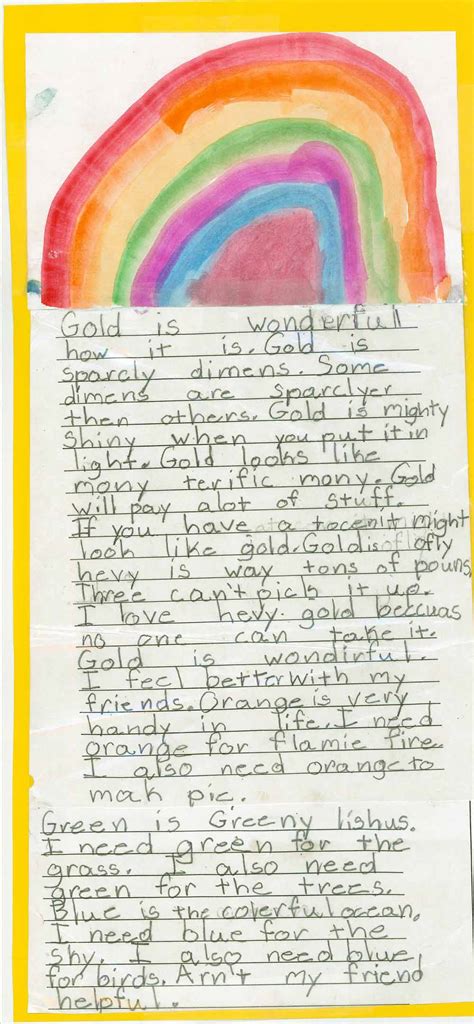 Gold is wonderful
how it is. Gold is
sparcly dimens. Some
dimens are sparclyer
then others. Gold is mighty
Shiny when you put it in
light. Gold looks like
mony terific mony. Gold
will pay alot of stuff.
If you have a might
look like gold. Gold is ofly
hevy is way tons of pouns
Three can't pick it up.
I love hevy gold beccuas
no one can take it.
Gold is wondirful.
I feel better with my
friends. Orange is very
handy in life. I need
orange for flamie fire.
I also need orange to
mak pic.
Green is Greeny lishus.
I need green for the
grass. I also need
green for the trees.
Blue is the colerful ocean,
I need blue for the
shy. I also need blue
for birds. Arn't my friend
helpful.